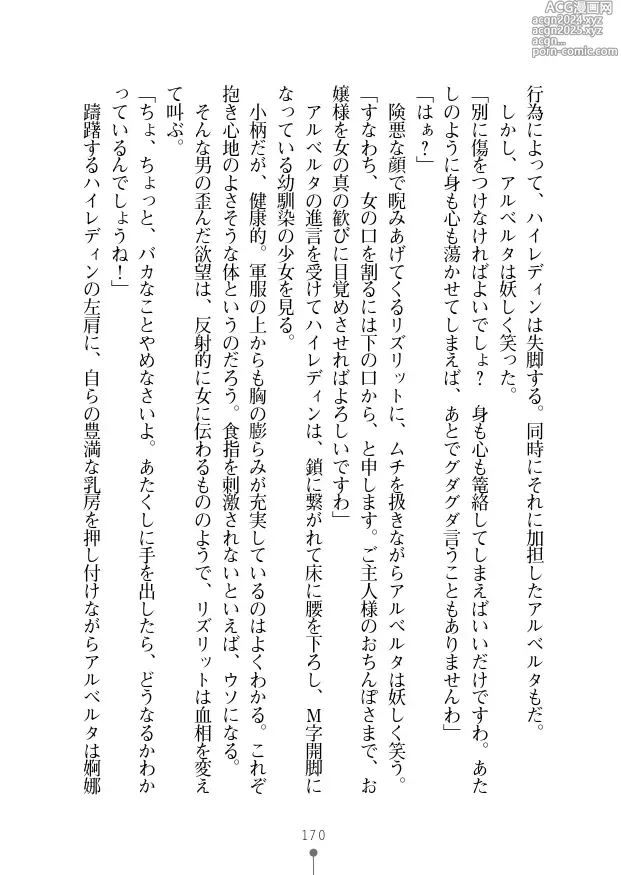 行為によって、ハイレディンは失脚する。同時にそれに加担したアルベルタもだ。
しかし、アルベルタは妖しく笑った。
「別に傷をつけなければよいでしょ？　身も心も篭絡してしまえばいいだけですわ。あた
しのように身も心も蕩かせてしまえば、あとでグダグダ言うこともありませんわ」
「はぁ？」
険悪な顔で睨みあげてくるリズリットに、ムチを扱きながらアルベルタは妖しく笑う。
「すなわち、女の口を割るには下の口から、と申します。ご主人様のおちんぽさまで、お
嬢様を女の真の歓びに目覚めさせればよろしいですわ」
アルベルタの進言を受けてハイレディンは、鎖に繋がれて床に腰を下ろし、Ｍ字開脚に
なっている幼馴染の少女を見る。
小柄だが、健康的。軍服の上からも胸の膨らみが充実しているのはよくわかる。これぞ
抱き心地のよさそうな体というのだろう。食指を刺激されないといえば、ウソになる。
そんな男の歪んだ欲望は、反射的に女に伝わるもののようで、リズリットは血相を変え
て叫ぶ。
「ちょ、ちょっと、バカなことやめなさいよ。あたくしに手を出したら、どうなるかわか
っているんでしょうね！」
躊躇するハイレディンの左肩に、自らの豊満な乳房を押し付けながらアルベルタは婀娜
170
ACG漫画网
acgn2024.xyz
acgn2025.xyz
acgn...
porn-comic.com